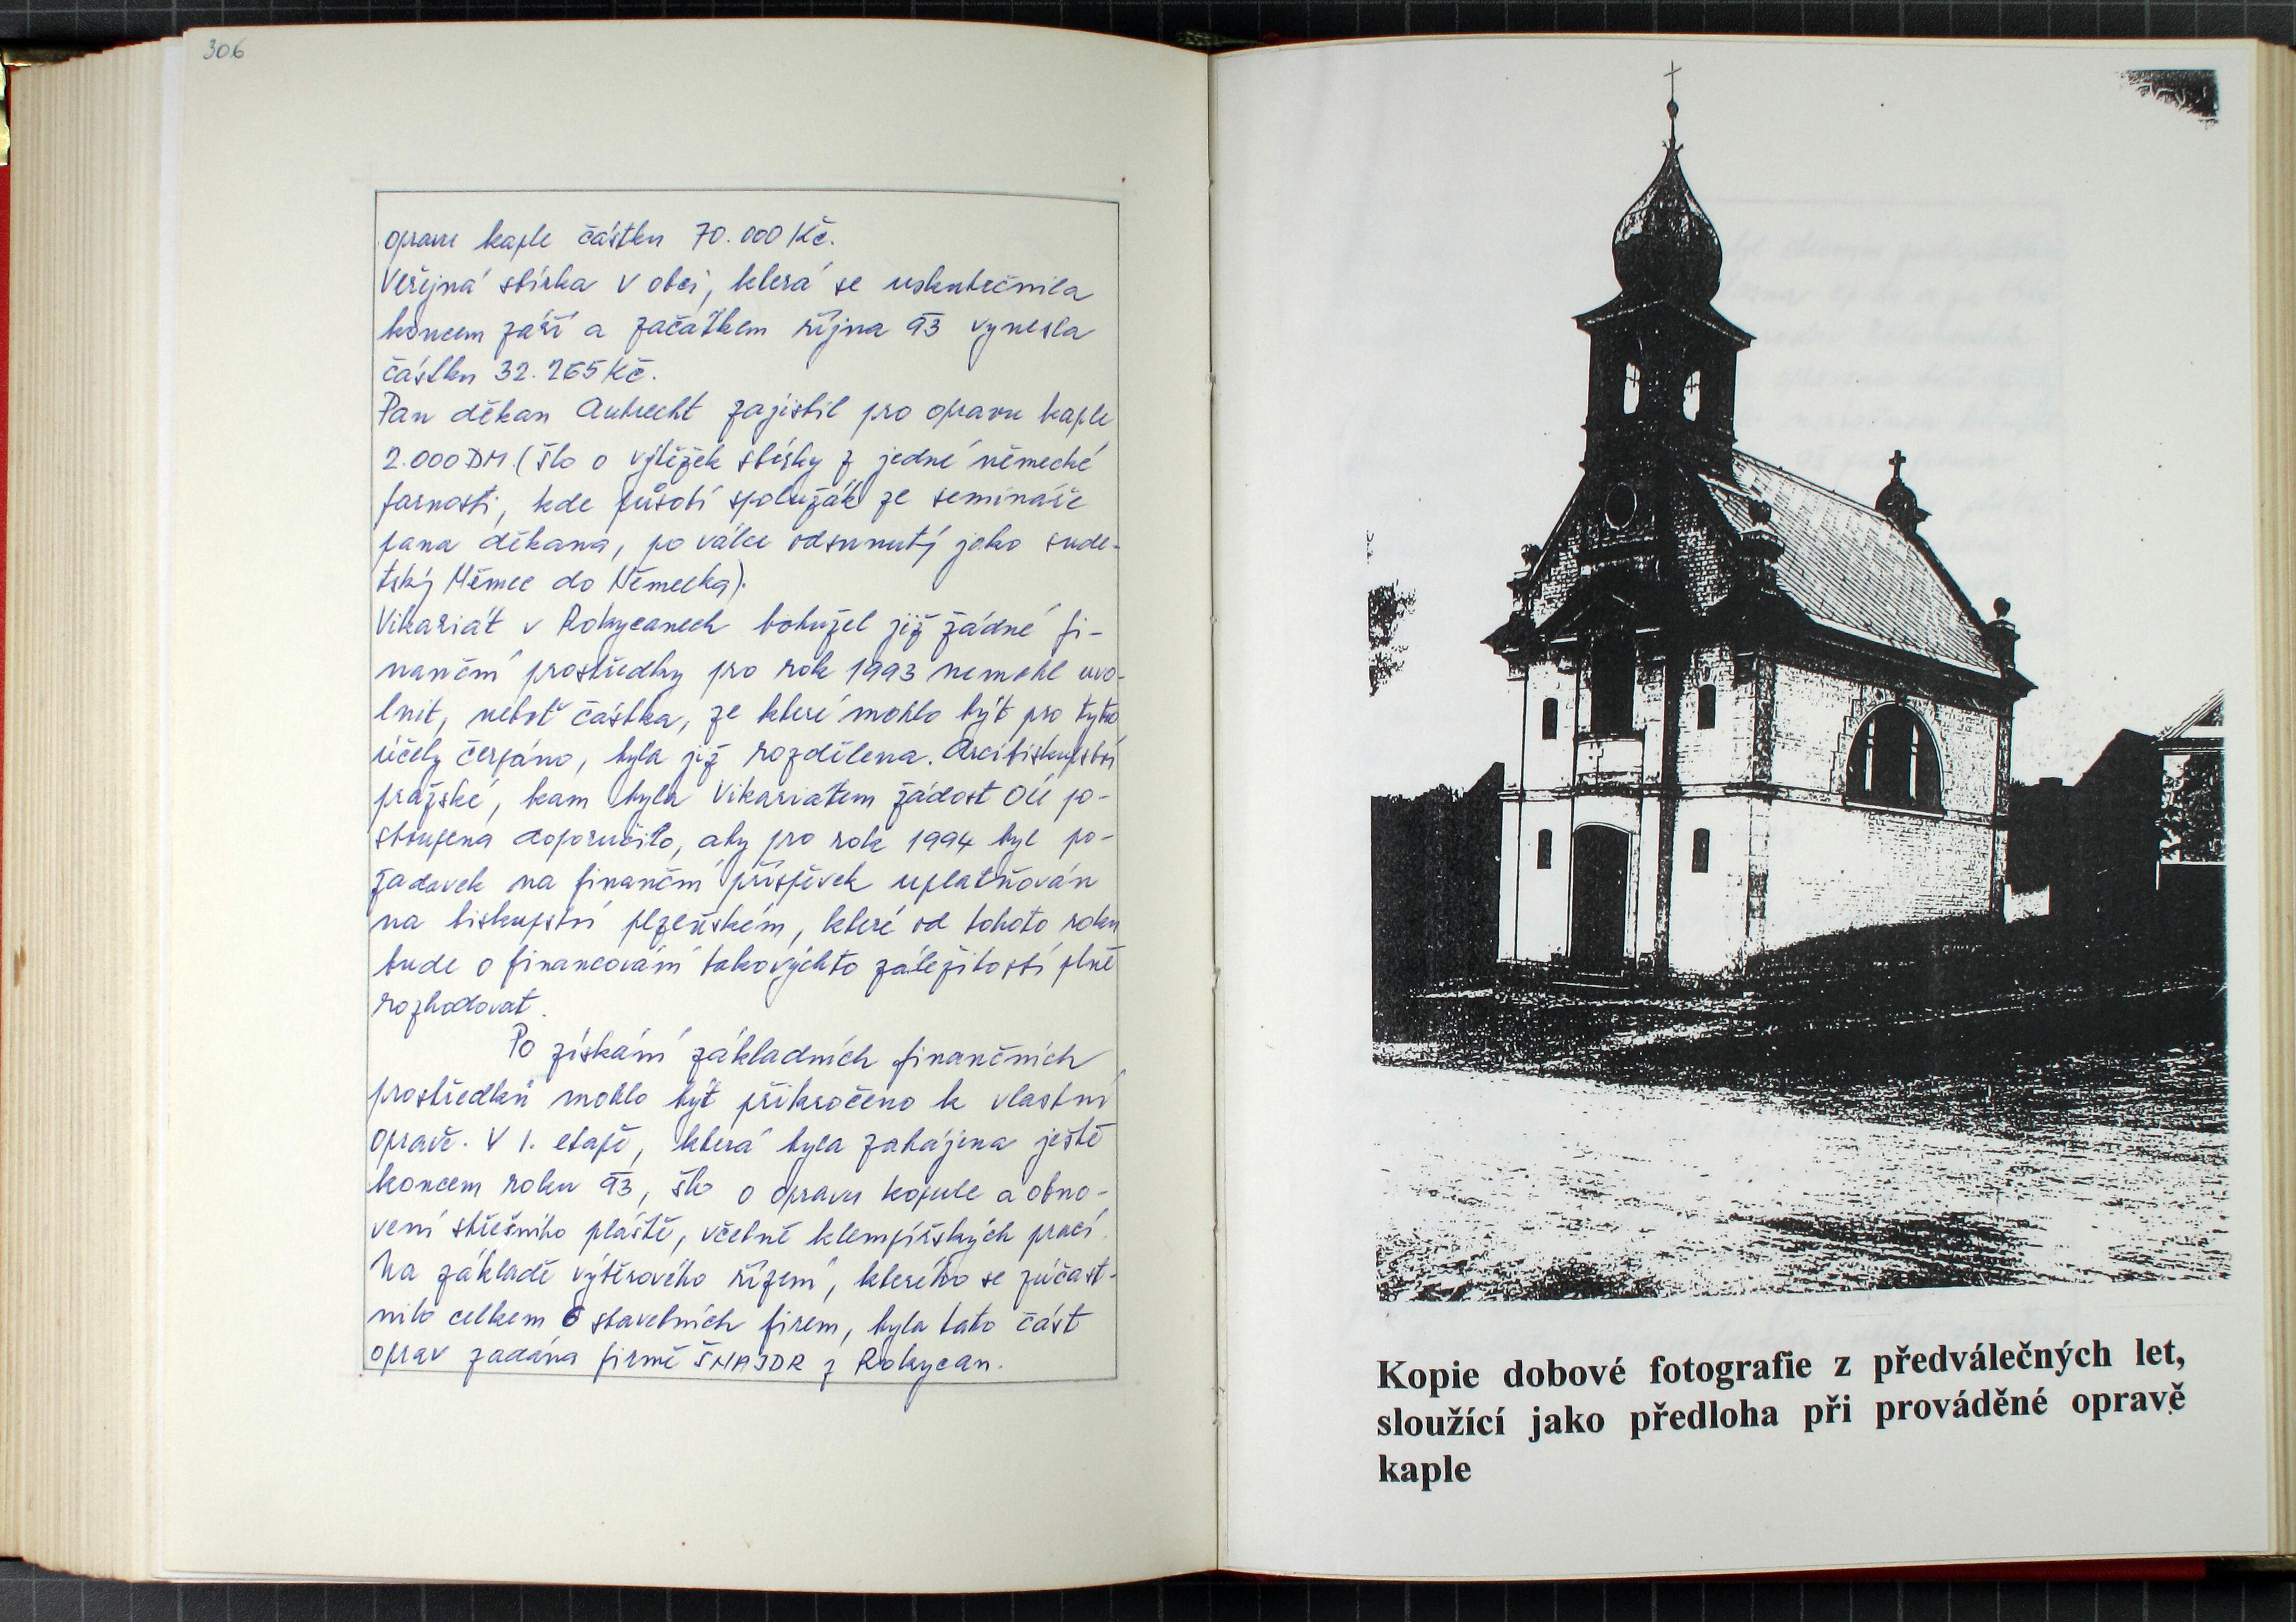 306
opravu kaple částku 70.000 Kč.
Veřejná sbírka v obci, která se uskutečnila
koncem září a začátkem října 93 vynesla
částku 32.265 Kč.
Pan děkan Aubrecht zajistil pro opravu kaple
2.000 DM. (šlo o výtěžek sbírky z jedné německé
farnosti, kde působí spolužák ze semináře
pana děkana, po válce odsunutý jako sude-
tský Němec do Německa).
Vikariát v Rokycanech bohužel již žádné fi-
nanční prostředky pro rok 1993 nemohl uvo-
lnit, neboť částka, ze které mohlo být pro tyto
účely čerpáno, byla již rozdělena. Arcibiskupství
pražské, kam byla Vikariatem žádost OÚ po-
stoupena doporučilo, aby pro rok 1994 byl po-
žadavek na finanční příspěvek uplatňován
na biskupství plzeňském, které od tohoto roku
bude o financování takovýchto záležitostí plně
rozhodovat.
Po získání základních finančních
prostředků mohlo být přikročeno k vlastní
opravě. V 1. etapě, která byla zahájena ještě
koncem roku 93, šlo o opravu kopule a obno-
vení střešního pláště, včetně klempířských prací.
Na základě výběrového řízení, kterého se zúčast-
nilo celkem 6 stavebních firem, byla tato část
oprav zadána firmě ŠNAJDR z Rokycan.
Kopie dobové fotografie z předválečných let,
sloužící jako předloha při prováděné opravě
kaple